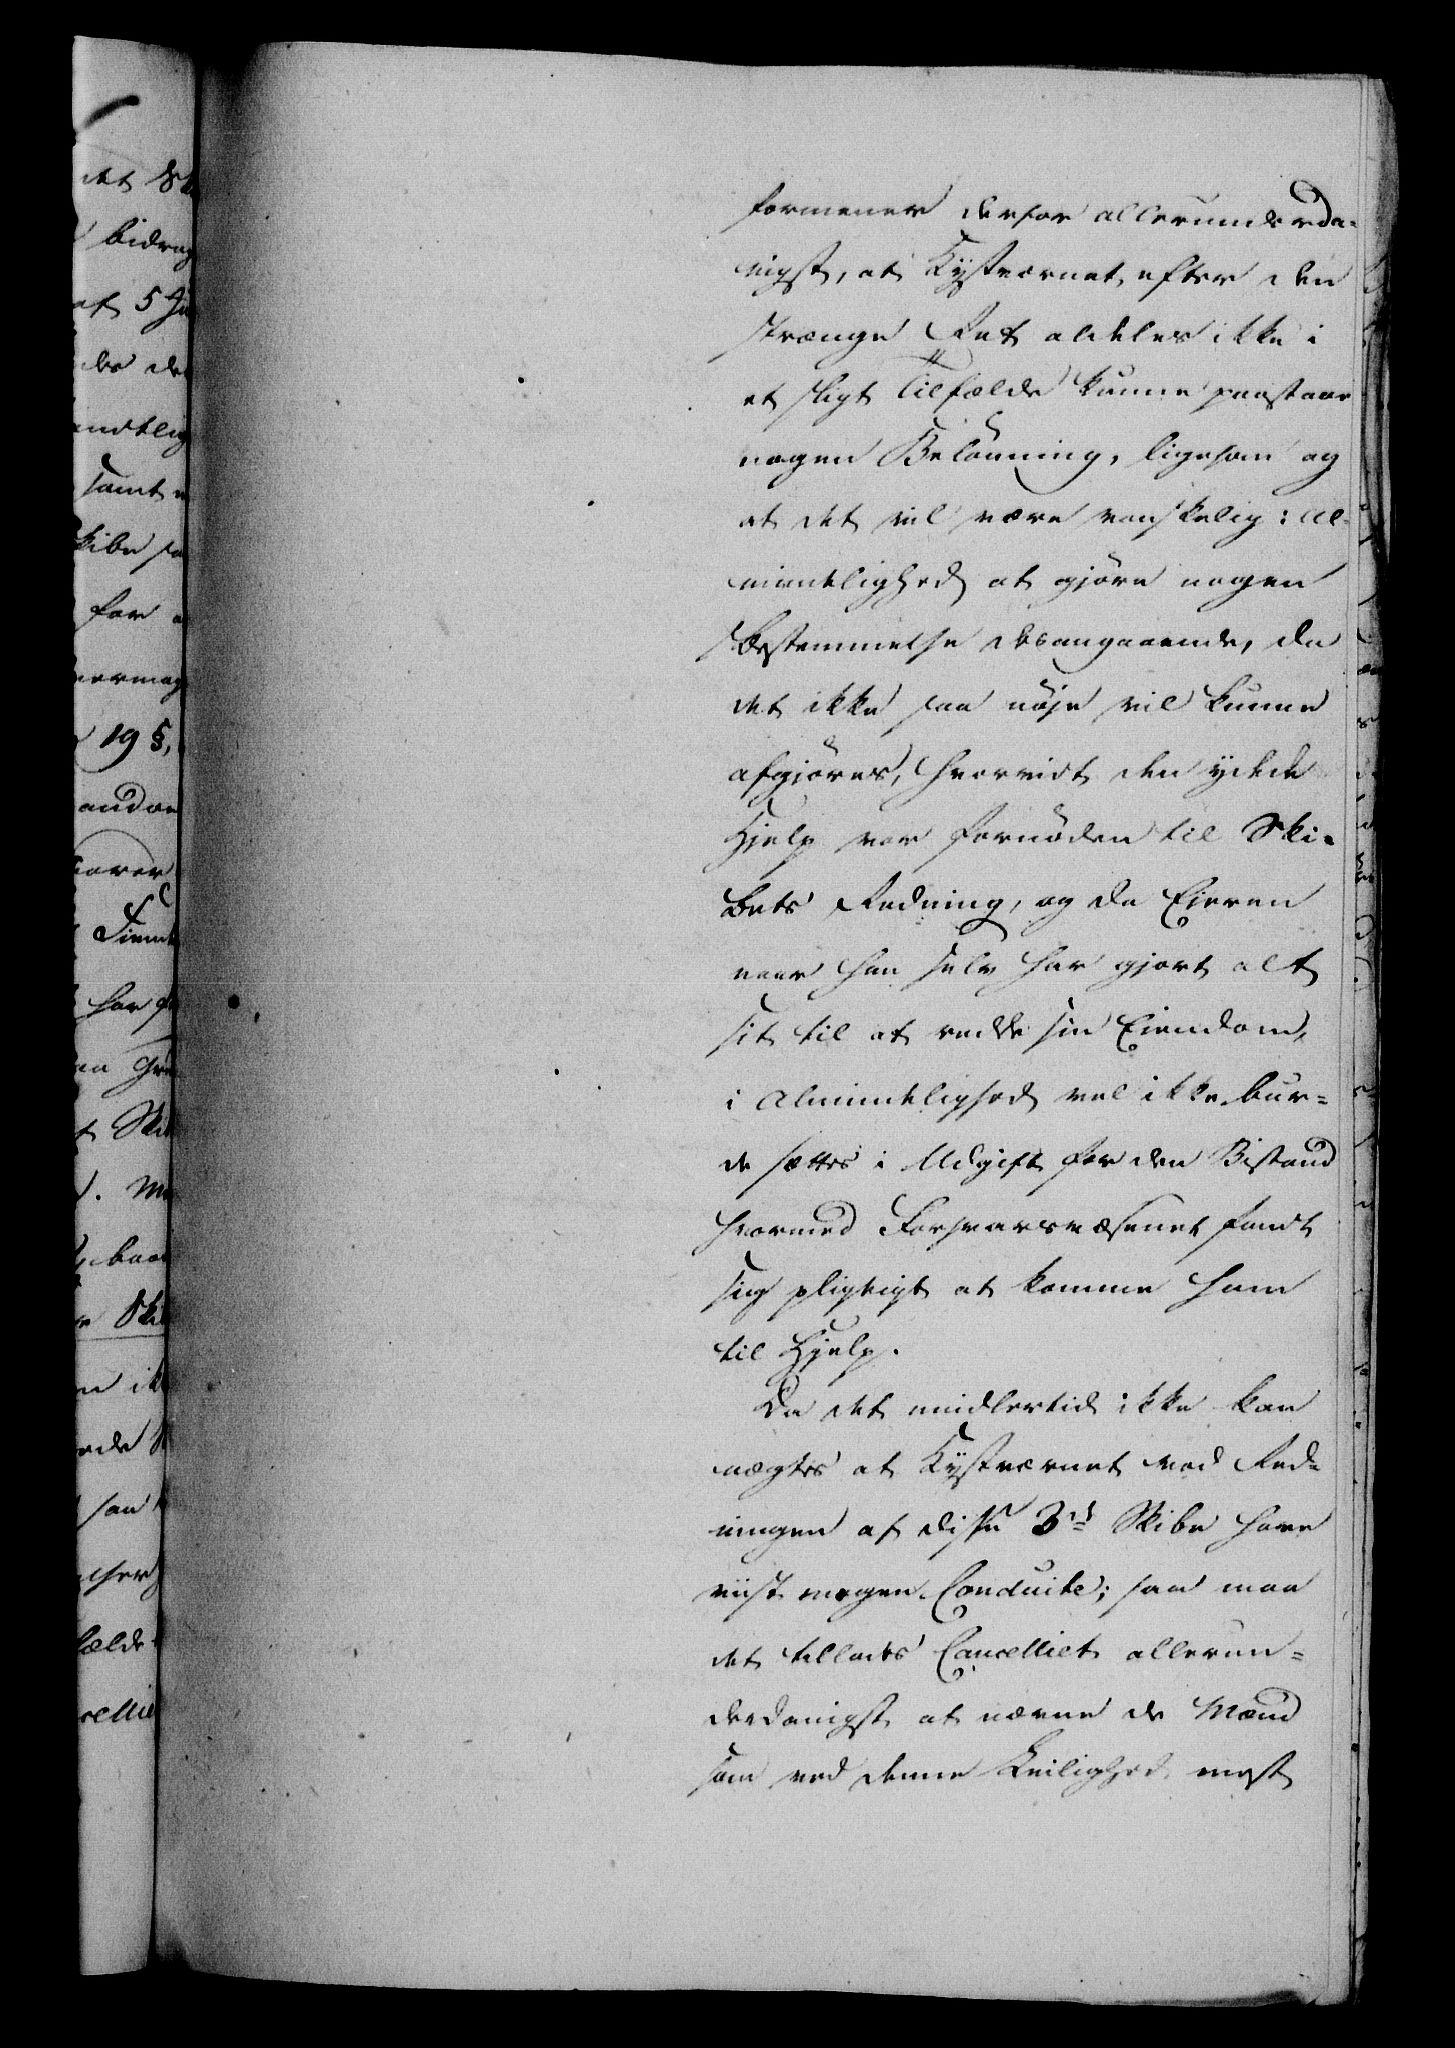 formener derfor allerunderda-
nigst, at Kystværnet efter den
strænge Ret aldeles ikke i
et sligt Tilfælde kunne paastaae
nogen Belönning, ligesom og
at det vil være vanskelig i Al-
mindelighed at gjöre nogen
Bestemmelse desangaaende, da
det ikke saa nöje vil kunne
afgjöres, hvorvidt den ydede
Hjelp var fornöden til Ski-
bets Redning, og da Eieren
naar han selv har gjort alt
sit til at redde sin Eiendom,
i Almindelighed vel ikke bur-
de sættes i Udgift for den Bistand
hvormed Forsvarsvæsenet fandt
sig pligtigt at komme ham
til Hjelp.
Da det imidlertid ikke kan
nægtes at Kystværnet ved Red-
ningen af disse 3de Skibe have
viist megen Conduite; saa maa
det tillades Cancelliet allerun-
derdanigst at nævne de Mænd
som ved denne Leilighed mest
det Sk
bidrag
at 5 Ju
des de
indtlig
samt
kibe sa
for
ermag
19 §,
andre
Fiend
har
t Ski
. Me
r Skib
n ik
ede
saa
fælde
cellie